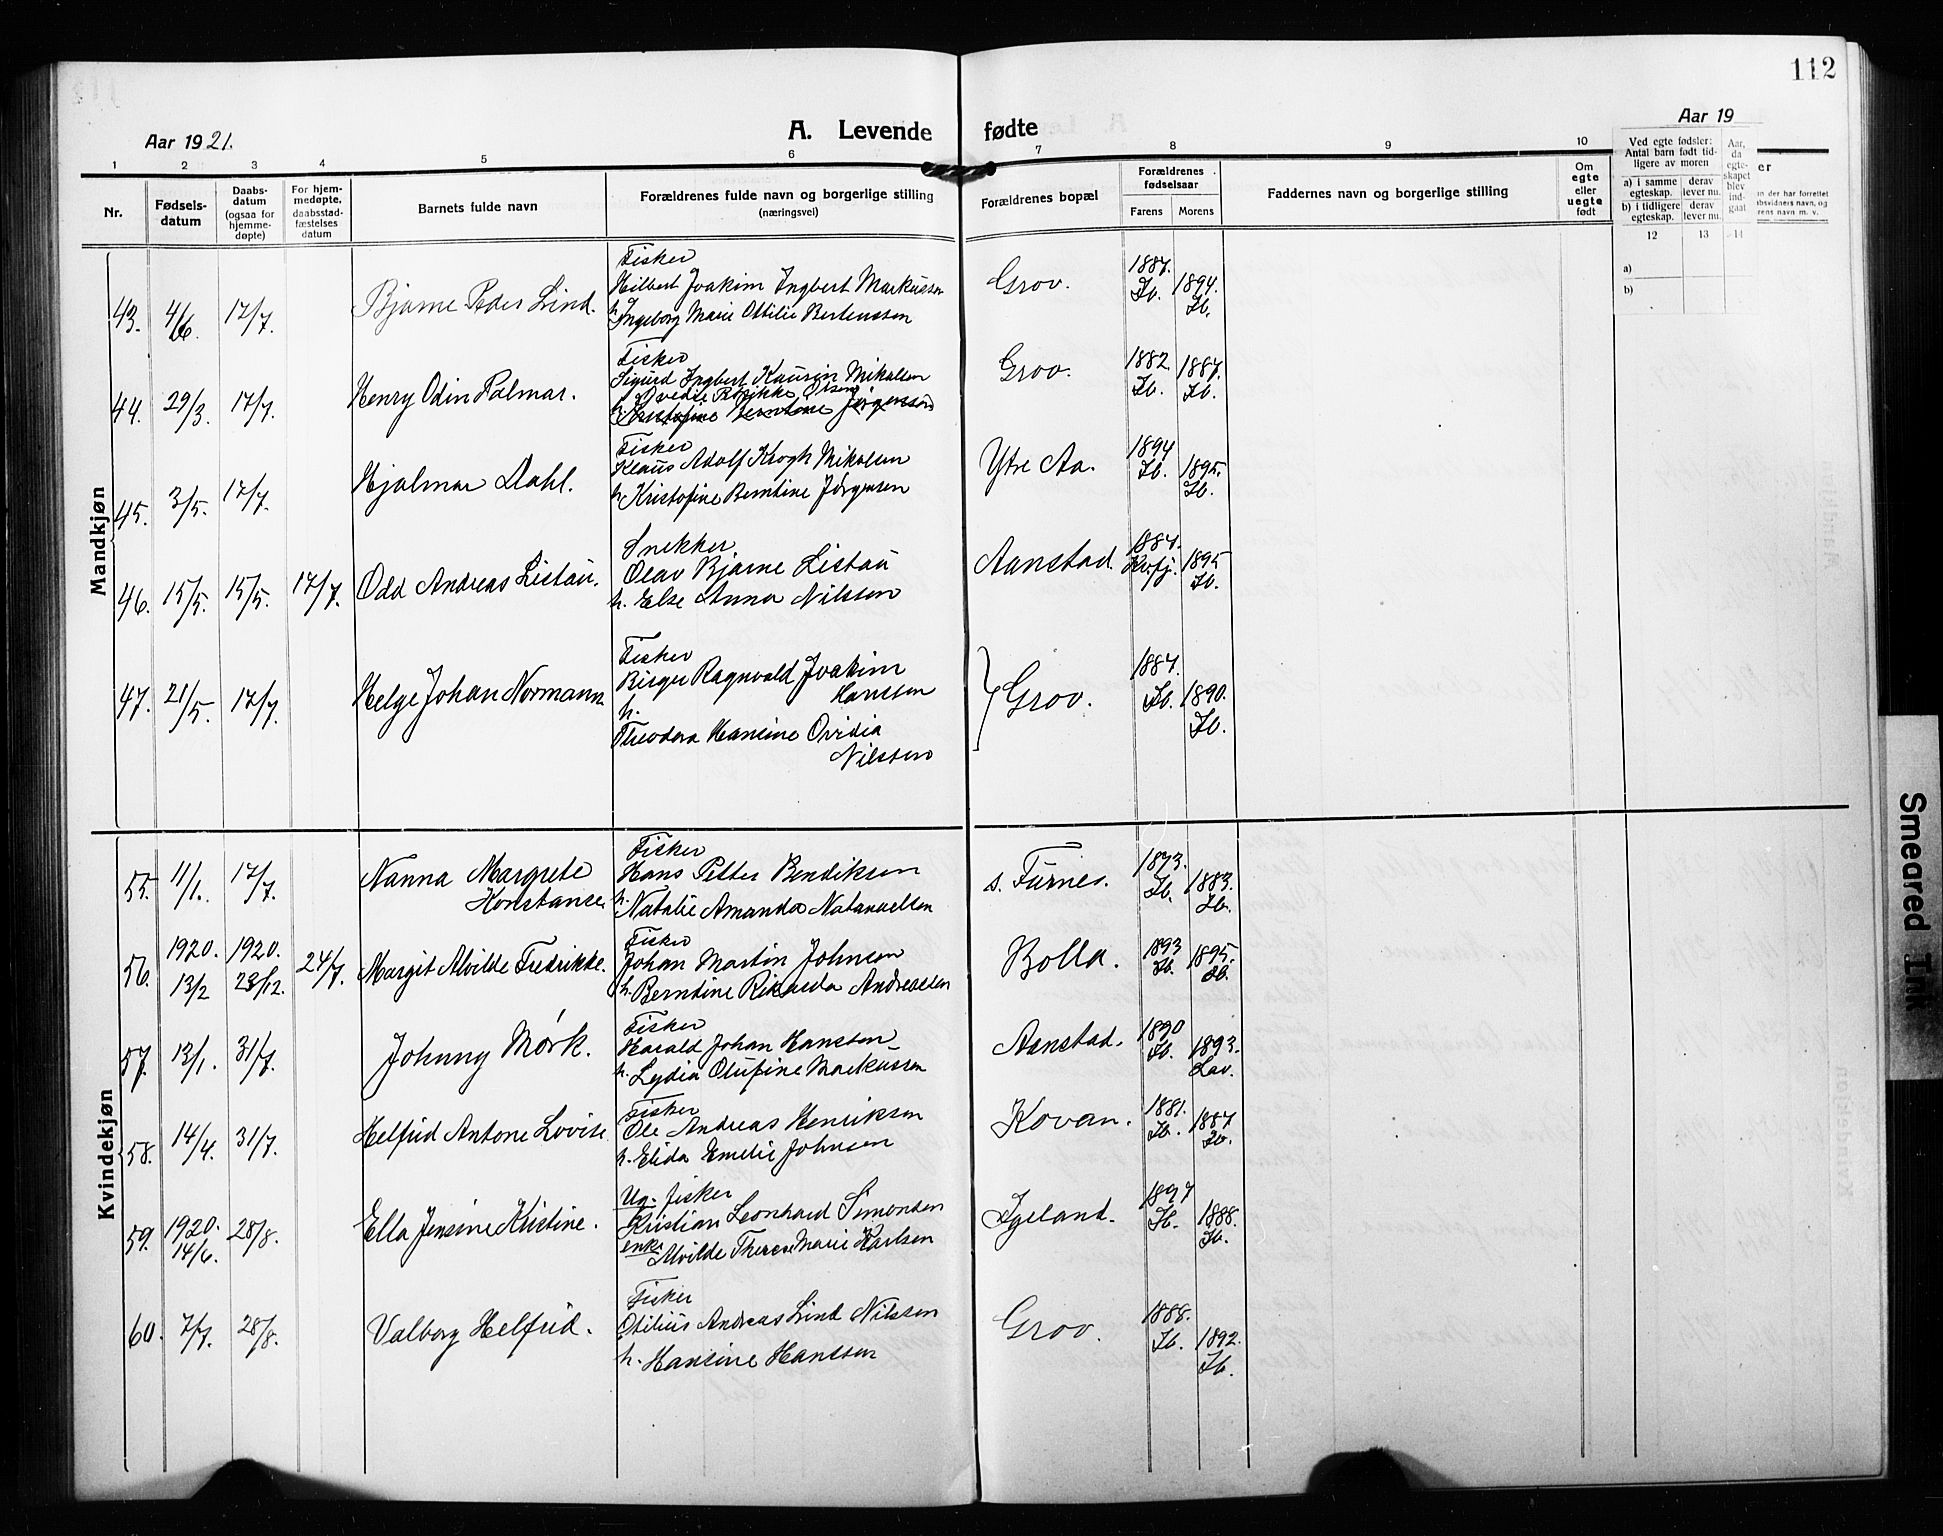 112
Aar 1921.
A. Levende fødte
Aar 19
1 2 3 4 5 6 7 8 9 10
Nr.
Fødsels-
datum
Daabs-
datum
(ogsaa for
hjemme-
døpte)
For hjem-
medøpte,
daabsstad-
fæstelses
datum
Barnets fulde navn
Forældrenes fulde navn og borgerlige stilling
(næringsvei)
Forældrenes bopæl
Forældrenes
fødselsaar
Farens Morens
Faddernes navn og borgerlige stilling
Om
egte
eller
uegte
født
Ved egte fødsler:
Antal barn født tid-
ligere av moren
a) i samme
egteskap.
derav
lever nu.
b) i tidligere
egteskap.
derav
lever nu.
Aar,
da
egte-
skapet
blev
ind-
gaat
12 13 14
a)
b)
er
n der har forrettet
bsvidners navn, og
rens navn m. v.
Mandkjøn
43. 4/6. 17/7. Bjarne Peder Lind.
Fisker
Hilbert Joakim Ingbert Markussen
h. Ingeborg Marie Ottilie Berteussen
Grov. 1887. Ib. 1894. Ib.
44. 29/3. 17/7. Henry Odin Palmar.
Fisker
Sigurd Ingbert Kaurin Mikalsen
Ovedie Rørikke Olsen
h. Kristofine Berntine Jørgensen
Grov. 1882. Ib. 1887. Ib.
45. 3/5. 17/7. Hjalmar Dahl.
Fisker
Klaus Adolf Krogh Mikalsen
h. Kristofine Berntine Jørgensen
Ytre Aa. 1894 Ib. 1895. Ib.
46. 15/5. 15/5. 17/7. Odd Andreas Listau.
Snekker
Olav Bjarne Listau
h. Else Anna Nilssen
Aanstad. 1887. Kvfj. 1895 Ib.
47. 21/5. 17/7. Helge Johan Normann
Fisker
Birger Ragnvald Joakim
Hanssen
h.
Theodora Hansine Ovidia
Nilssen
Grov. 1887. Ib. 1890. Ib.
Kvindekjøn
55. 11/1. 17/7. Nanna Margrete
Konstanse
Fisker
Hans Petter Bendiksen
h. Natalie Amanda Natanaelsen
s. Furnes. 1873. Ib. 1883. Ib.
56. 1920. 13/2 1920. 23/12. 24/7. Margit Alvilde Fredrikke.
Fisker
Johan Martin Johnsen
h. Berntine Rikarda Andreassen
Bolla. 1893 Ib. 1895. Ib.
57. 13/1. 31/7. Johnny Mørk.
Fisker
Harald Johan Hanssen
h. Lydia Olufine Markussen
Aanstad. 1890 Ib. 1893. Lav.
58. 14/4. 31/7. Helfrid Antone Lovise
Fisker
Ole Andreas Henriksen
h. Elida Emelie Johnsen
Kovan. 1881. Ib. 1887 Ib.
59. 1920. 14/6. 28/8. Ella Jensine Kristine.
Ug. fisker
Kristian Leonhard Simonsen
enke Alvilde Therese Marie Karlsen
Igeland. 1897 Ib. 1888. Ib.
60. 7/7. 28/8. Valborg Helfrid.
Fisker
Otilius Andreas Lind Nilssen
h. Hansine Hanssen
Grov. 1888. Ib. 1892. Ib.
Smeared Ink